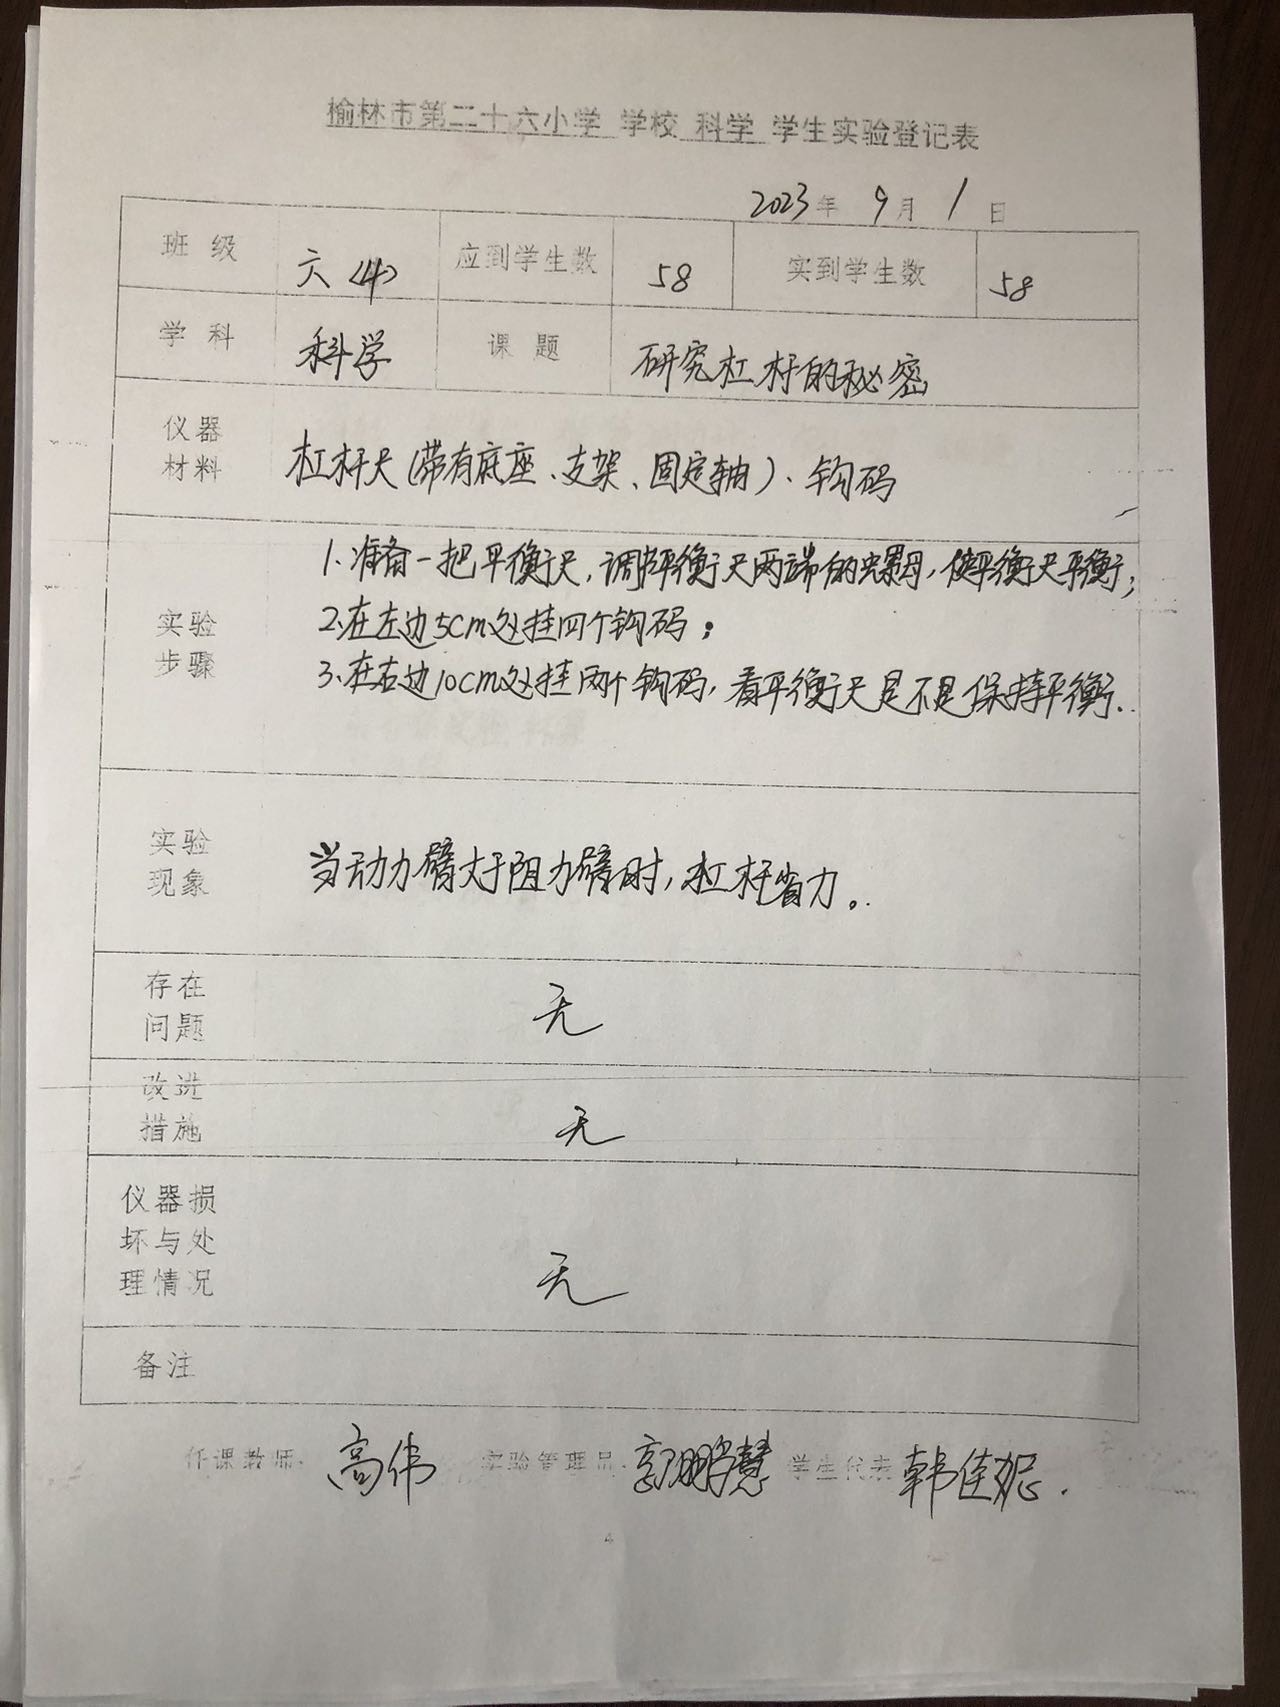 榆林市第二十六小学 学校 科学 学生实验登记表
2023年 9月 1日
班级 六(4) 应到学生数 58 实到学生数 58
学科 科学 课题 研究杠杆的秘密
仪器
材料
杠杆尺(带有底座、支架、固定轴)、钩码
实验
步骤
1.准备一把平衡尺,调节平衡尺两端的螺母,使平衡尺平衡;
2.在左边5cm处挂四个钩码;
3.在右边10cm处挂两个钩码,看平衡尺是不是保持平衡.
实验
现象
当动力臂大于阻力臂时,杠杆省力。
存在
问题
无
改进
措施
无
仪器损
坏与处
理情况
无
备注
任课教师: 高伟 实验管理员: 郭鹏慧 学生代表 韩佳妮.
4